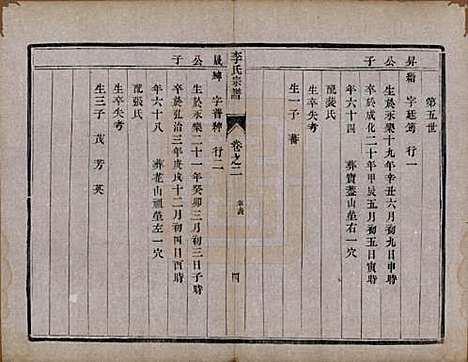 第五世
昇 字廷簿 行一
公 生於永樂十九年辛丑六月初九日申時
卒於成化二十年甲辰五月初五日寅時
子 年六十四 葬寶蓋山座右一穴
配裴氏
生卒失考
生一子 蕃
李氏宗譜
卷之二
四
晟 字普 行二
公 生於永樂二十一年癸卯三月初三日子時
卒於弘治三年庚戌十二月初四日酉時
子 年六十八 葬花山祖塋左一穴
配張氏
生卒失考
生三子 茂 芳 英